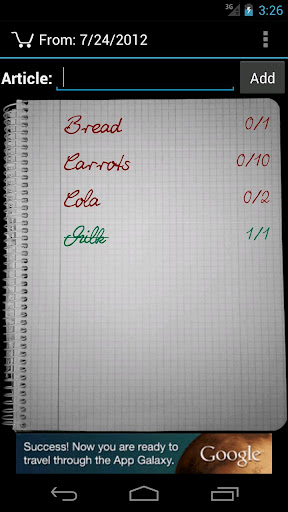 3G 3:26
From: 7/24/2012
Article: Add
Bread 0/1
Carrots 0/10
Cola 0/2
Milk 1/1
Success! Now you are ready to
travel through the App Galaxy.
Google